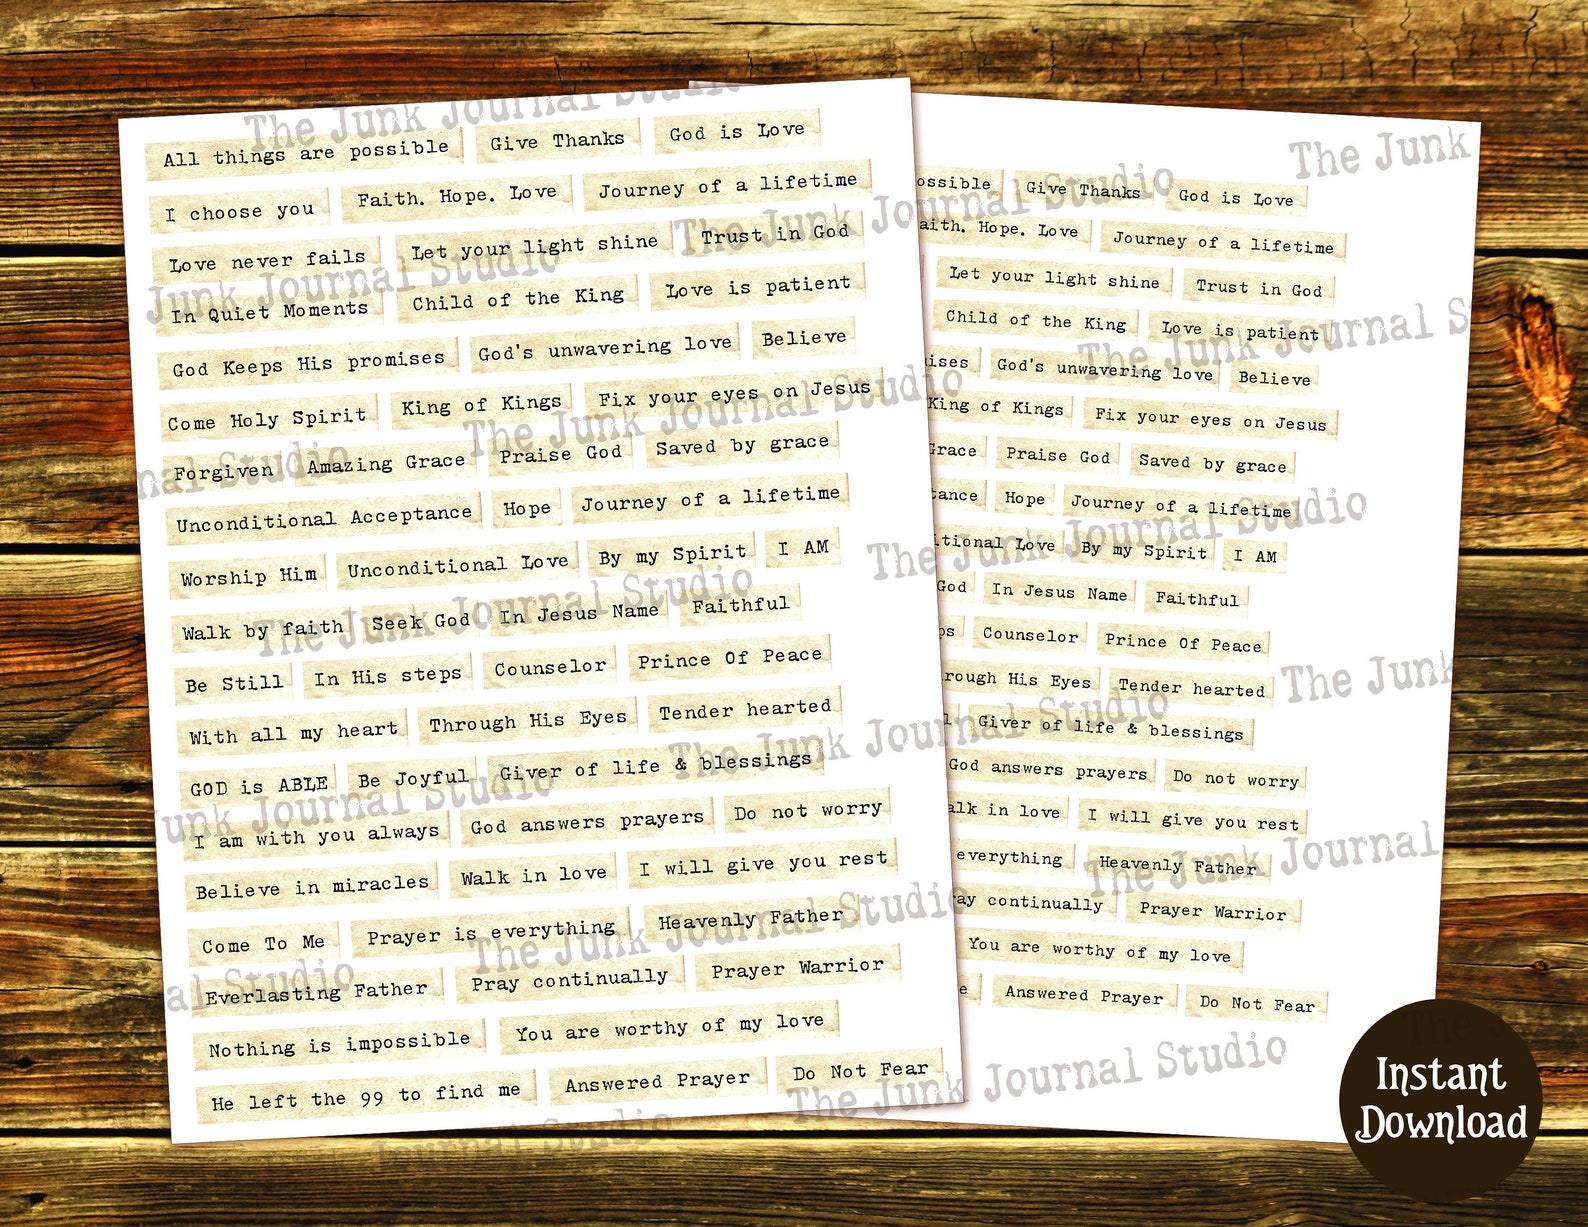 The Junk Journal Studio
All things are possible Give Thanks God is Love
I choose you Faith. Hope. Love Journey of a lifetime
Love never fails Let your light shine Trust in God
In Quiet Moments Child of the King Love is patient
God Keeps His promises God's unwavering love Believe
Come Holy Spirit King of Kings Fix your eyes on Jesus
Forgiven Amazing Grace Praise God Saved by grace
Unconditional Acceptance Hope Journey of a lifetime
Worship Him Unconditional Love By my Spirit I AM
Walk by faith Seek God In Jesus Name Faithful
Be Still In His steps Counselor Prince Of Peace
With all my heart Through His Eyes Tender hearted
GOD is ABLE Be Joyful Giver of life & blessings
I am with you always God answers prayers Do not worry
Believe in miracles Walk in love I will give you rest
Come To Me Prayer is everything Heavenly Father
Everlasting Father Pray continually Prayer Warrior
Nothing is impossible You are worthy of my love
He left the 99 to find me Answered Prayer Do Not Fear
The Junk
ossible Give Thanks God is Love
aith. Hope. Love Journey of a lifetime
Let your light shine Trust in God
Child of the King Love is patient
ises God's unwavering love Believe
King of Kings Fix your eyes on Jesus
Grace Praise God Saved by grace
tance Hope Journey of a lifetime
itional Love By my Spirit I AM
God In Jesus Name Faithful
ps Counselor Prince Of Peace
rough His Eyes Tender hearted
l Giver of life & blessings
God answers prayers Do not worry
alk in love I will give you rest
everything Heavenly Father
ay continually Prayer Warrior
You are worthy of my love
e Answered Prayer Do Not Fear
The Junk Journal Studio
Instant
Download